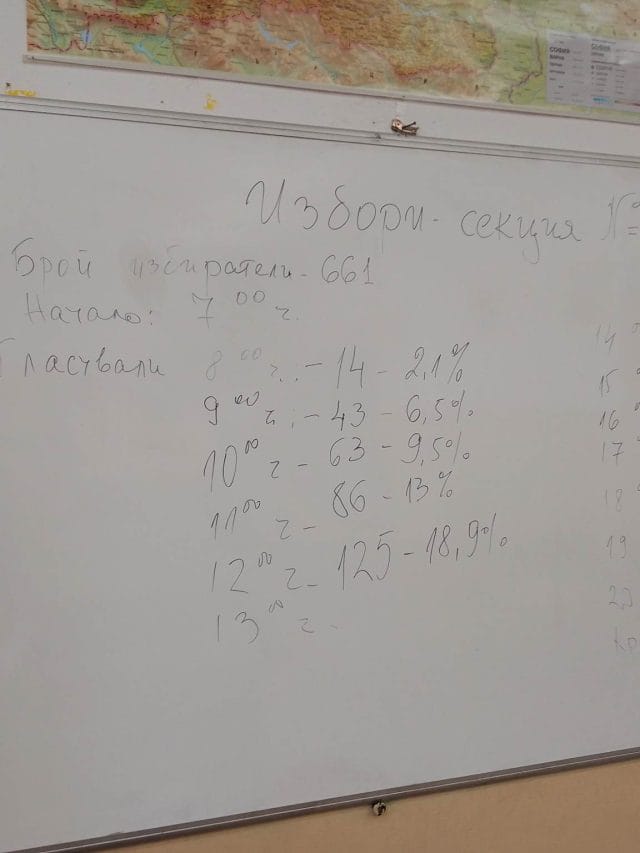 СОФИЯ
СОФИЯ
Избори - секция №
Брой избиратели - 661
Начало: 7 00 ч.
Гласували 8 00 ч.: - 14 - 2,1%
9 00 ч: - 43 - 6,5%
10 00 ч - 63 - 9,5%
11 00 ч - 86 - 13%
12 00 ч - 125 - 18,9%
13 00 ч -
14
15
16
17
18
19